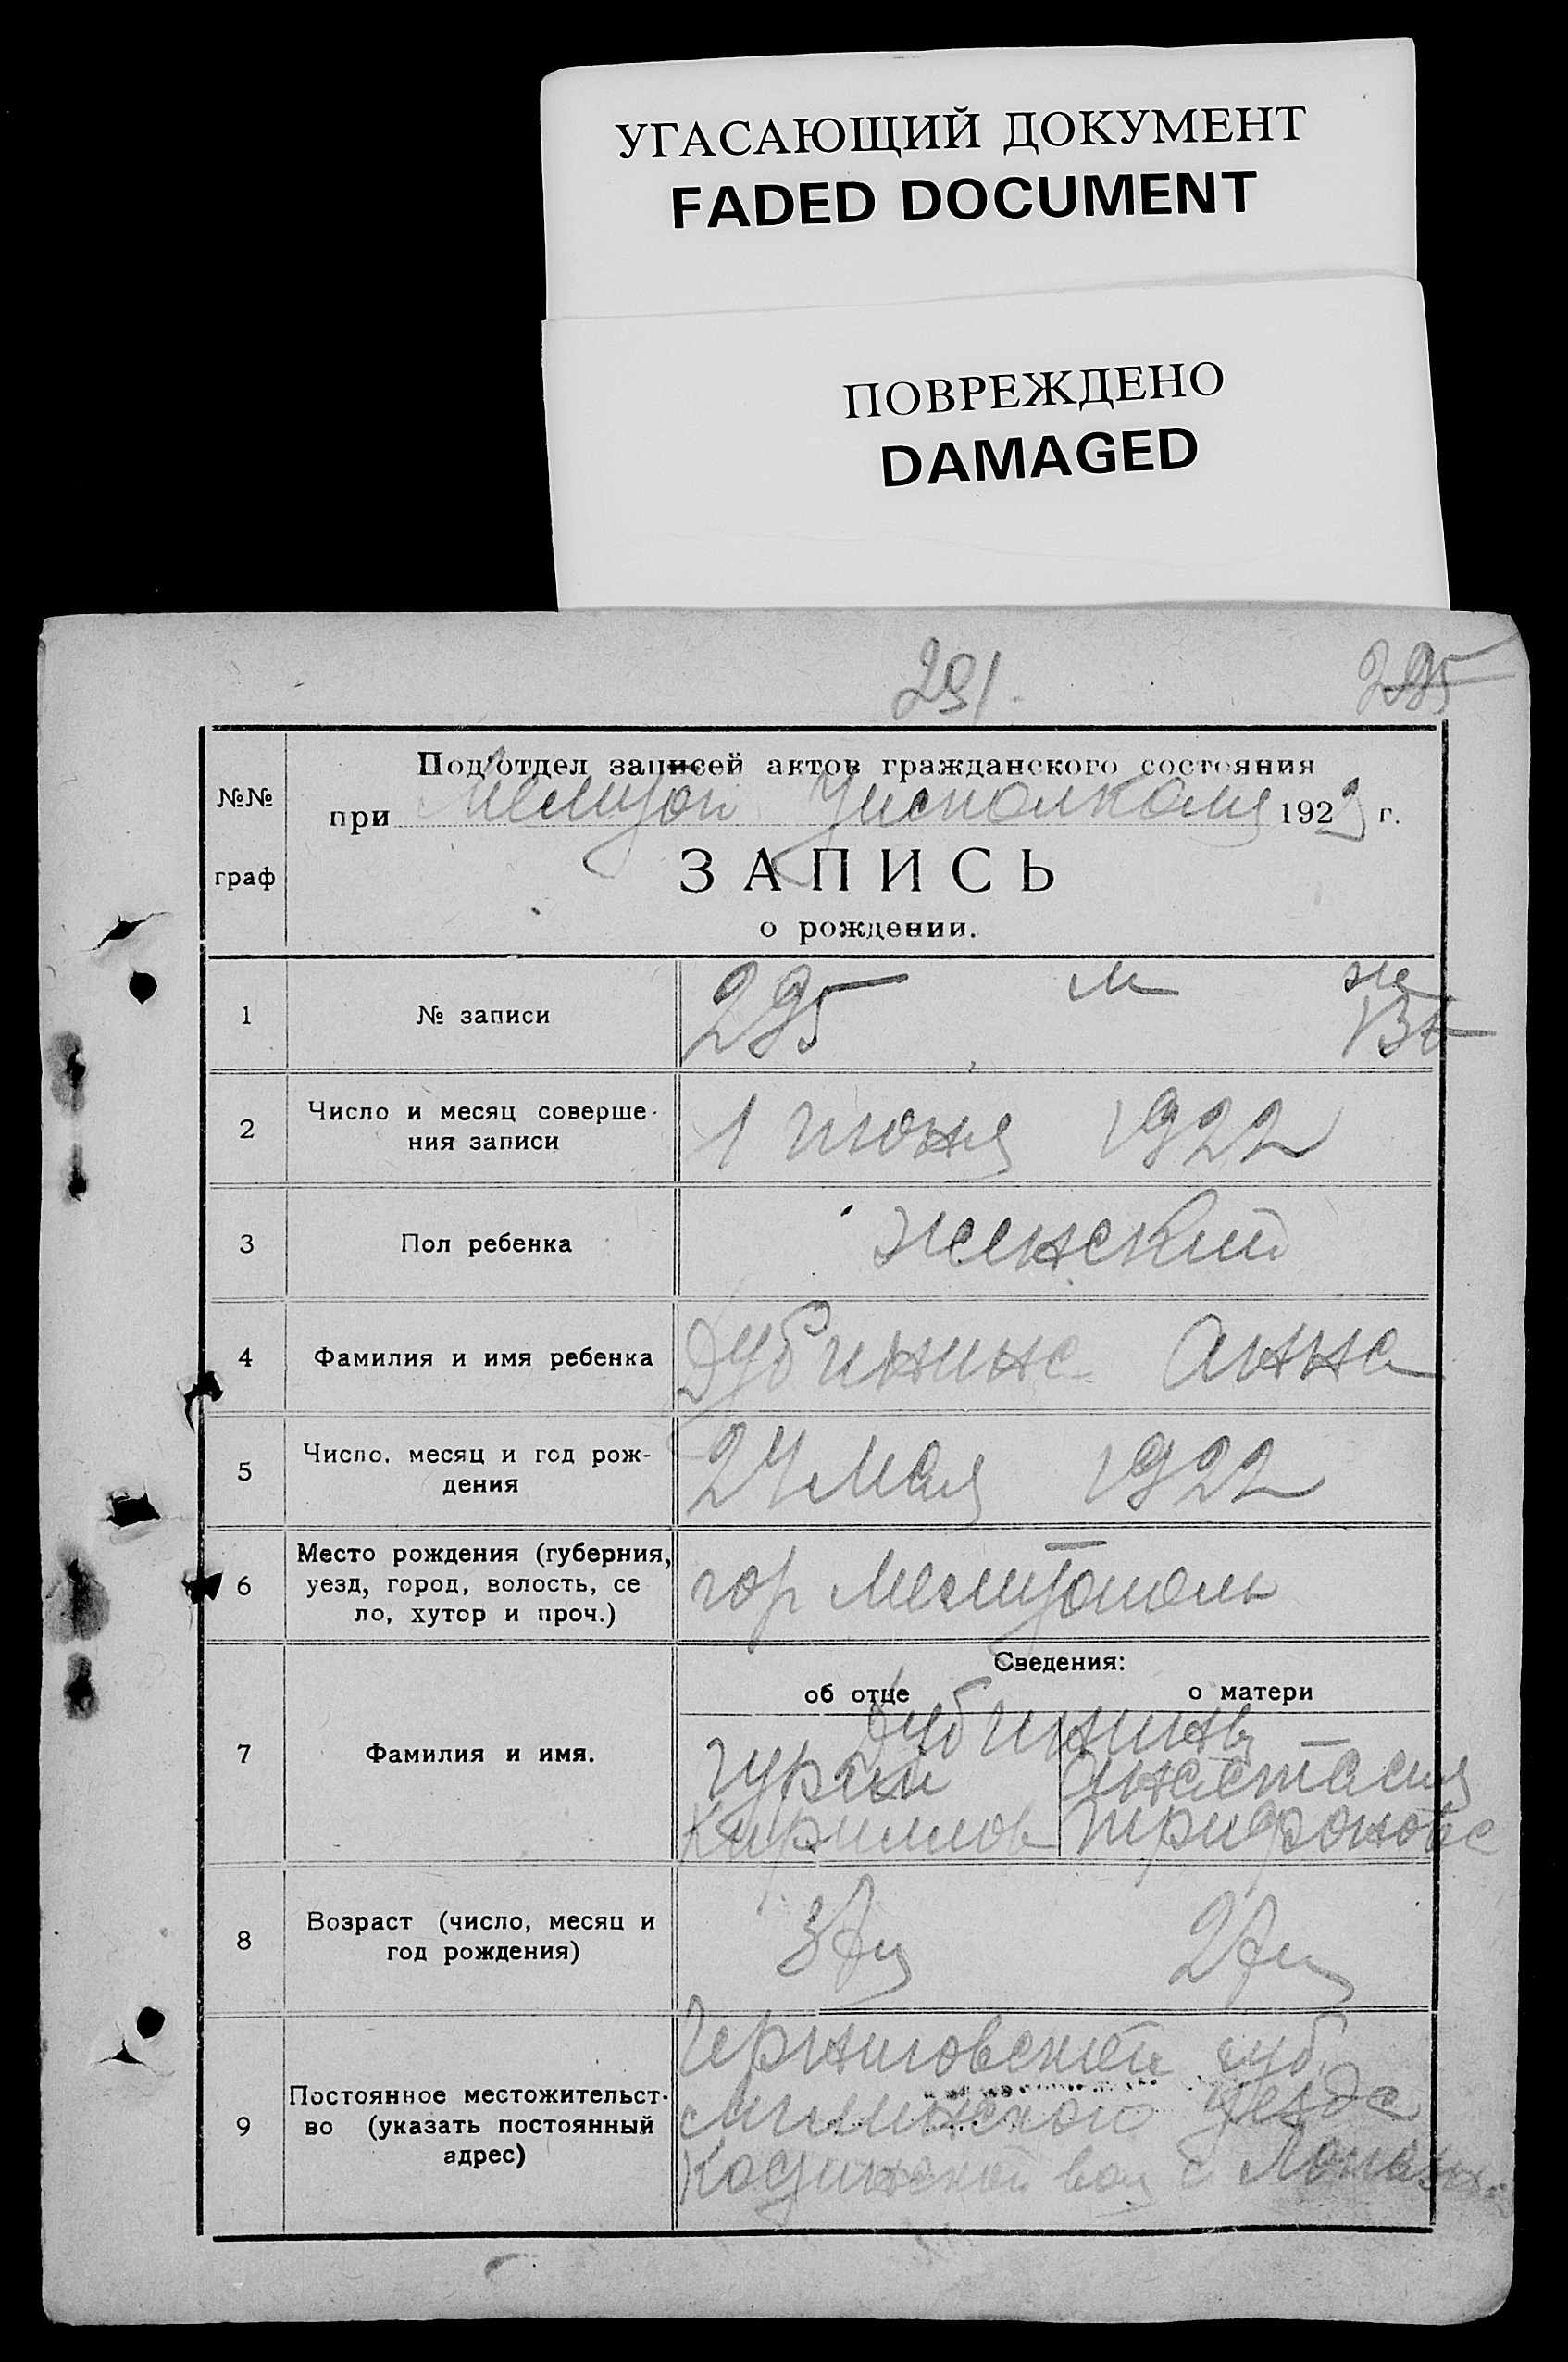 УГАСАЮЩИЙ ДОКУМЕНТ
FADED DOCUMENT
ПОВРЕЖДЕНО
DAMAGED
291.
295
№№
граф
Под'отдел записей актов гражданского состояния
при Мелитоп Уисполкома 192 г.
ЗАПИСЬ
о рождении.
1
№ записи
295 м же
2
Число и месяц соверше-
ния записи
1 июня 1922
3
Пол ребенка
женский
4
Фамилия и имя ребенка
Дубинина Анна
5
Число, месяц и год рож-
дения
24 мая 1922
6
Место рождения (губерния,
уезд, город, волость, се
ло, хутор и проч.)
гор Мелитополь
Сведения:
об отце
о матери
7
Фамилия и имя.
Дубинины
Гурий
Анастасия
Кириллов
Трифонова
8
Возраст (число, месяц и
год рождения)
9
Постоянное местожительст-
во (указать постоянный
адрес)
Черниговской губ.
уезда
вол с.